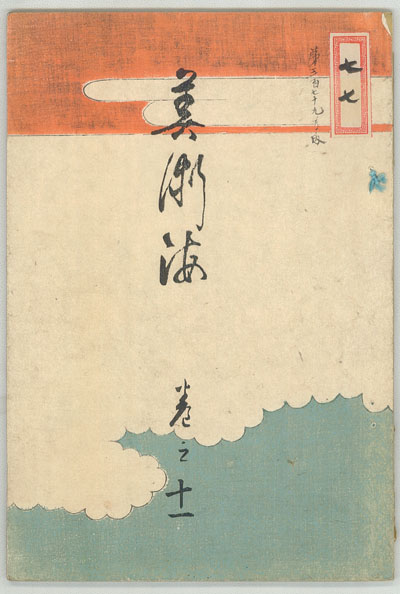 七七
第二百七十九号ノ内
美術海
巻之十一